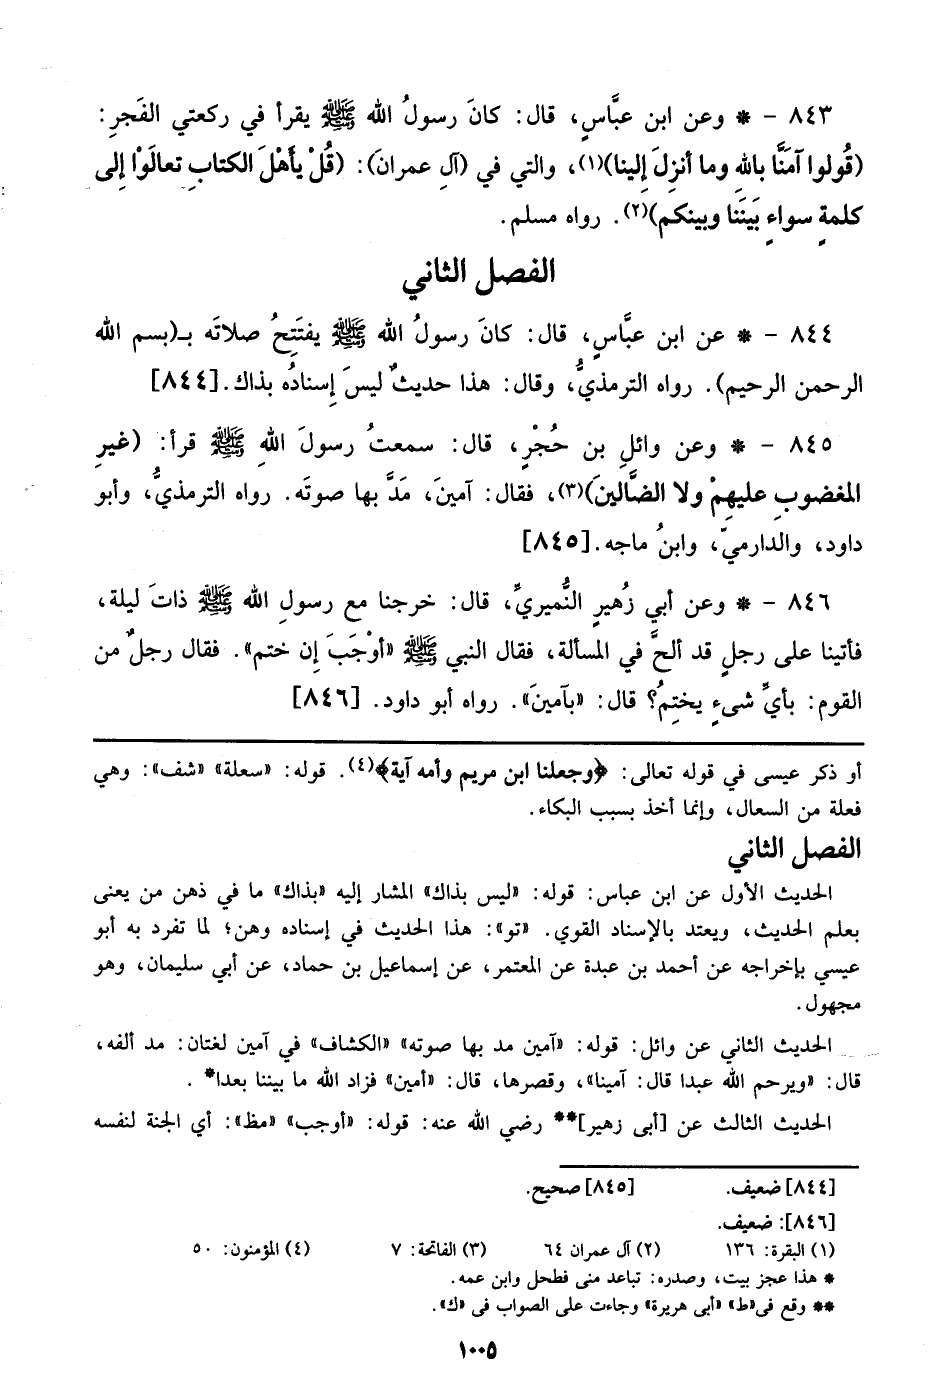 ٨٤٣ – * وعن ابن عبَّاسٍ، قال: كانَ رسولُ الله ﷺ يقرأ في ركعتي الفَجرِ:
(قُولوا آمَنَّا باللهِ وما أنزِلَ إلينا)(١)، والتي في (آلِ عمرانَ): (قُلْ يأَهْلَ الكتابِ تعالَوْا إلى
كلمةٍ سواءٍ بَيَنَنا وبينكم)(٢). رواه مسلم.
الفصل الثاني
٨٤٤ – * عن ابن عبَّاسٍ، قال: كانَ رسولُ الله ﷺ يفتَتِحُ صلاتَه بـ(بسم الله
الرحمن الرحيم). رواه الترمذيُّ، وقال: هذا حديثٌ ليسَ إسنادُه بذاك.[٨٤٤]
٨٤٥ – * وعن وائلِ بن حُجْرٍ، قال: سمعتُ رسولَ اللهِ ﷺ قرأ: (غيرِ
المغضوبِ عليهِمْ ولا الضَّالينَ)(٣)، فقال: آمينَ، مَدَّ بها صوتَه. رواه الترمذيُّ، وأبو
داود، والدارميّ، وابنُ ماجه.[٨٤٥]
٨٤٦ – * وعن أبي زُهيرٍ النُّميريِّ، قال: خرجنا مع رسولِ الله ﷺ ذاتَ ليلة،
فأتينا على رجلٍ قد ألحَّ في المسألة، فقال النبي ﷺ «أوْجَبَ إن ختم». فقال رجلٌ من
القوم: بأيِّ شىءٍ يختِمُ؟ قال: «بآمينَ». رواه أبو داود. [٨٤٦]
أو ذكر عيسى في قوله تعالى: ﴿وجعلنا ابن مريم وأمه آية﴾(٤). قوله: «سعلة» «شف»: وهي
فعلة من السعال، وإنما أخذ بسبب البكاء.
الفصل الثاني
الحديث الأول عن ابن عباس: قوله: «ليس بذاك» المشار إليه «بذاك» ما في ذهن من يعنى
بعلم الحديث، ويعتد بالإسناد القوي. «تو»: هذا الحديث في إسناده وهن؛ لما تفرد به أبو
عيسي بإخراجه عن أحمد بن عبدة عن المعتمر، عن إسماعيل بن حماد، عن أبي سليمان، وهو
مجهول.
الحديث الثاني عن وائل: قوله: «آمين مد بها صوته» «الكشاف» في آمين لغتان: مد ألفه،
قال: «ويرحم الله عبدا قال: آمينا»، وقصرها، قال: «أمين» فزاد الله ما بيننا بعدا* .
الحديث الثالث عن [أبى زهير]** رضي الله عنه: قوله: «أوجب» «مظ»: أي الجنة لنفسه
[٨٤٤] ضعيف. [٨٤٥] صحيح.
[٨٤٦]: ضعيف.
(١) البقرة: ١٣٦ (٢) آل عمران ٦٤ (٣) الفاتحة: ٧ (٤) المؤمنون: ٥٠
* هذا عجز بيت، وصدره: تباعد منى فطحل وابن عمه.
** وقع فى«ط» «أبى هريرة» وجاءت على الصواب فى «ك».
١٠٠٥